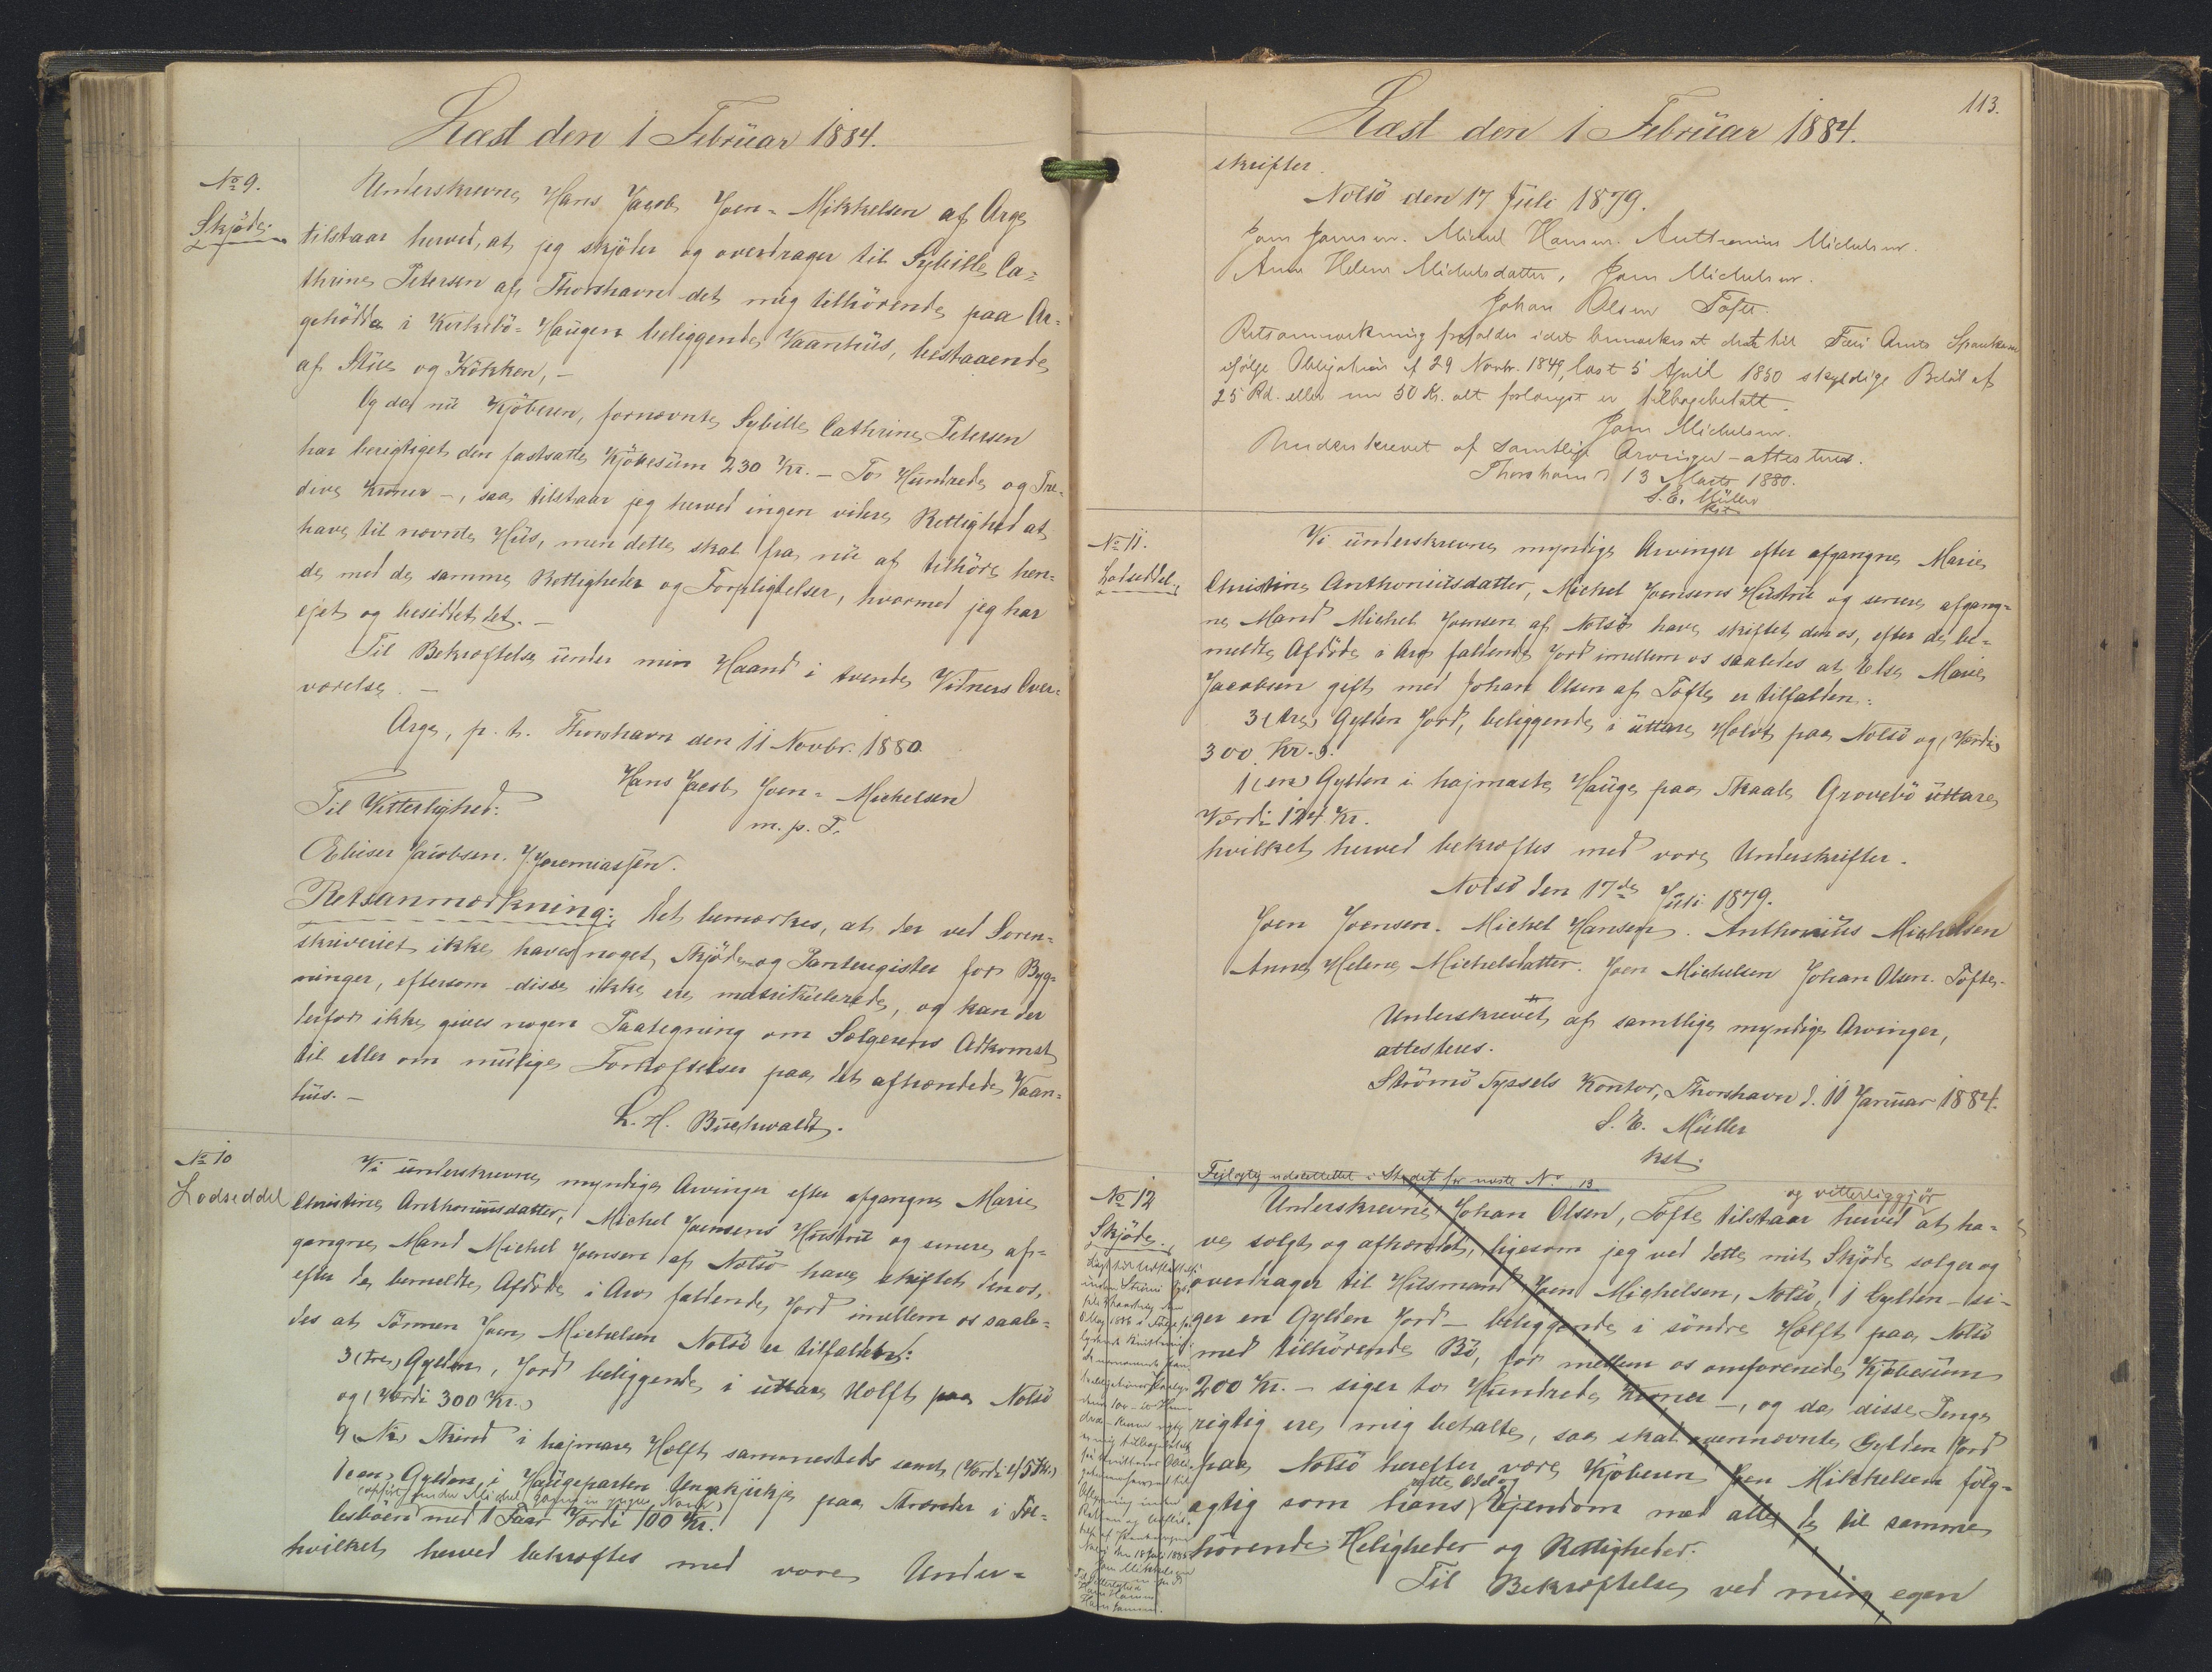 Læst den 1 Februar 1884.
No 9.
Skjöde.
Underskrevne Hans Jacob Joen-Mikkelsen af Arge
tilstaar herved, at jeg skjöder og overdrager til Sybille Ca=
thrine Petersen af Thorshavn det mig tilhörende, paa Ar-
gehödda i Kirkebö-Haugen beliggende Vaanhus, bestaaende
af Stue og Kökken, –
Og da nu Kjöberen, fornævnte Sybille Cathrine Petersen
har berigtiget den fastsatte Kjöbesum 230 Kr. – To Hundrede og Tre=
dive Kroner –, saa tilstaar jeg herved ingen videre Rettighed at
have til nævnte Hus, men dette skal fra nu af tilhöre hen-
de med de samme Rettigheder og Forpligtelser, hvormed jeg har
ejet og besiddet det. –
Til Bekræftelse under min Haand i tvende Vidners Over=
værelse. –
Arge, p. t. Thorshavn den 11 Novbr. 1880
Hans Jacob Joen-Mickelsen
m. p. F.
Til Vitterlighed:
Elieser Jacobsen. J. Joremiassen.
Retsanmærkning: Det bemærkes, at der ved Soren-
skriveriet ikke haves noget Skjöde og Panteregister for Byg-
ninger, eftersom disse ikke ere matrikulerede, og kan der
derfor ikke gives nogen Paategning om Sælgerens Adkomst
til eller om mulige Forhæftelser paa det afhændede Vaan-
hus. –
L. H. Buchwaldt.
No 10
Lodseddel
Vi underskrevne myndige Arvinger efter afgangne Marie
Christine Anthoniusdatter, Michel Joensens Hustru og senere af=
gangne Mand Michel Joensen af Nolsö have skiftet den os,
efter de bemeldte Afdöde i Arv faldende, Jord imellem os saale=
des at Sönnen Joen Michelsen Nolsö er tilfalden:
3 (tre) Gylden, Jord beliggende i uttare Hölft paa Nolsö
og (Værdi 300 Kr.)
9 (Ni) Skind i hejmare Hölft sammesteds samt (Værdi 45 Kr.)
1 (en) Gylden, i Haugeparten paa Strænder i Sel-
lesböen med 1 Faar Værdi 100 Kr.
hvilket herved bekræftes med vore Under=
113.
Læst den 1 Februar 1884.
skrifter.
Nolsö den 17 Juli 1879.
Joen Joensen. Michel Hansen. Anthonius Michelsen.
Anne Helene Michelsdatter, Joen Michelsen.
Johan Olsen Tofte.
Retsanmærkning frafalder idet bemærkes at det til Færö Amts Sparekasse
ifölge Obligation af 29 Novbr. 1849, læst 5 April 1850 skyldige Belöb af
25 Rd. eller nu 50 Kr. alt forlængst er tilbagebetalt.
Joen Michelsen.
Underskrevet af samtlige Arvinger – attesteres.
Thorshavn d 13 Marts 1880.
S. E. Müller
kst
No 11.
Lodseddel
Vi underskrevne myndige Arvinger efter afgangne Marie
Christine Anthoniusdatter, Michel Joensens Hustru og senere afgang=
ne Mand Michel Joensen af Nolsö have skiftet den os, efter de be=
meldte Afdöde i Arv faldende Jord imellem os saaledes at Else Marie
Jacobsen gift med Johan Olsen af Tofte er tilfalden:
3 (tre) Gylden Jord, beliggende i uttare Holvt paa Nolsö og (Værdi
300 Kr.).
1 (en) Gylden i hajmaste Hauge paa Skaale Grovebö uttare
Værdi 124 Kr.
hvilket herved bekræftes med vore Underskrifter.
Nolsö den 17de Juli 1879.
Joen Joensen. Michel Hansen. Anthonius Michelsen
Anne Helene Michelsdatter. Joen Michelsen Johan Olsen. Tofte.
Underskrevet af samtlige myndige Arvinger,
attesteres.
Strömö Syssels Kontor, Thorshavn d. 11 Januar 1884.
S. E. Müller
kst.
Fejlagtig udslettet i Stedet for næste No 13
No 12
Skjöde.
og vitterliggjör
Underskrevne Johan Olsen, Tofte tilstaar herved at ha-
ve solgt og afhændet, ligesom jeg ved dette mit Skjöde sælger og
overdrager til Husmand Joen Michelsen, Nolsö, 1 Gylden – si-
ger en Gylden Jord – beliggende i söndre Hölft paa Nolsö
med tilhörende Bö, for mellem os omforenede Kjöbesum
200 Kr. – siger to Hundrede Kroner –, og da disse Penge
rigtig ere mig betalte, saa skal ovennævnte Gylden Jord
paa Nolsö herefter være Kjöberen Joen Mikkelsen fölg=
agtig som hans rette Odel og Ejendom med alle de til samme
hörende Heligheder og Rettigheder.
Til Bekræftelse ved min egen